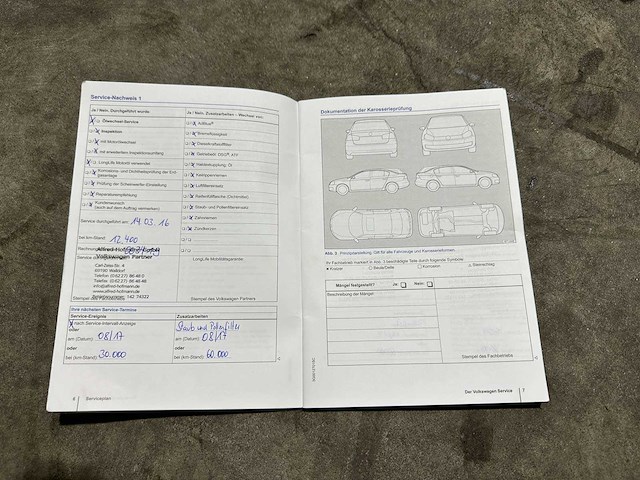 Service-Nachweis 1
Ja / Nein. Durchgeführt wurde:
Ölwechsel-Service
Inspektion
mit Motorölwechsel
mit erweitertem Inspektionsumfang
LongLife Motoröl verwendet
Prüfung der Scheinwerfer-Einstellung
Reparaturempfehlung
Kundenwunsch
(nach auf dem Auftrag vermerken)
Service durchgeführt am: 14.03.16
bei km-Stand: 12.400
Alfred Hofmann GmbH
Volkswagen Partner
Carl-Zeiss-Str. 4
69190 Walldorf
Telefon (0 62 27) 86 46 0
Telefax (0 62 27) 86 46 46
info@alfred-hofmann.de
www.alfred-hofmann.de
Ja / Nein. Zusatzarbeiten - Wechsel von:
AdBlue®
Bremsflüssigkeit
Dieselkraftstofffilter
Getriebeöl: DSG®, ATF
Haldexkupplung: Öl
Keilrippenriemen
Luftfiltereinsatz
Staub- und Pollenfiltereinsatz
Zahnriemen
Zündkerzen
LongLife Mobilitätsgarantie
Stempel des Volkswagen Partners
Ihre nächsten Service-Termine
Service-Ereignis
nach Service-Intervall-Anzeige
oder
am (Datum): 08/17
oder
bei (km-Stand): 30.000
Zusatzarbeiten
Staub und Pollenfilter
am (Datum): 08/17
oder
bei (km-Stand): 60.000
6 Serviceplan
Dokumentation der Karosserieprüfung
Abb. 3 Prinzipdarstellung: Gilt für alle Fahrzeuge und Karosserieformen.
Ihr Fachbetrieb markiert in Abb. 3 beschädigte Teile durch folgende Symbole:
Kratzer Beule/Delle Korrosion Steinschlag
Mängel festgestellt? Ja: Nein:
Beschreibung der Mängel:
Stempel des Fachbetriebs
Der Volkswagen Service 7